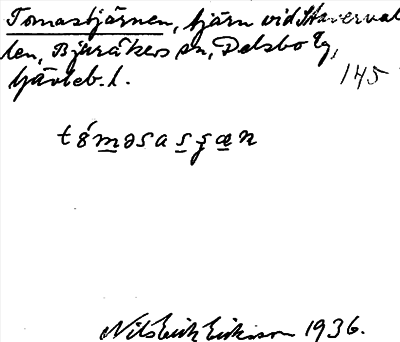 Tomastjärnen, tjärn vid Stavervallen,
Bjuråkers sn, Delsbo tg,
Gävleb. l.
145
Nils Erik Eriksson 1936.